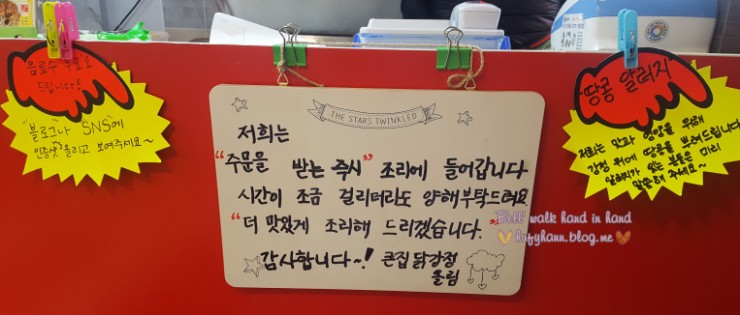 음료수 무료로
드립니다!
"블로그나 SNS"에
인증샷 올리고 보여주세요~
THE STARS TWINKLED
저희는
"주문을 받는 즉시" 조리에 들어갑니다
시간이 조금 걸리더라도 양해부탁드려요
"더 맛있게 조리해 드리겠습니다."
감사합니다~! 큰집 닭강정
올림
땅콩 알러지
저희는 맛과 영양을 위해
강정 위에 땅콩을 뿌려드립니다
알러지가 있는 분들은 미리
말씀해 주세요~
walk hand in hand
hyjyhann.blog.me